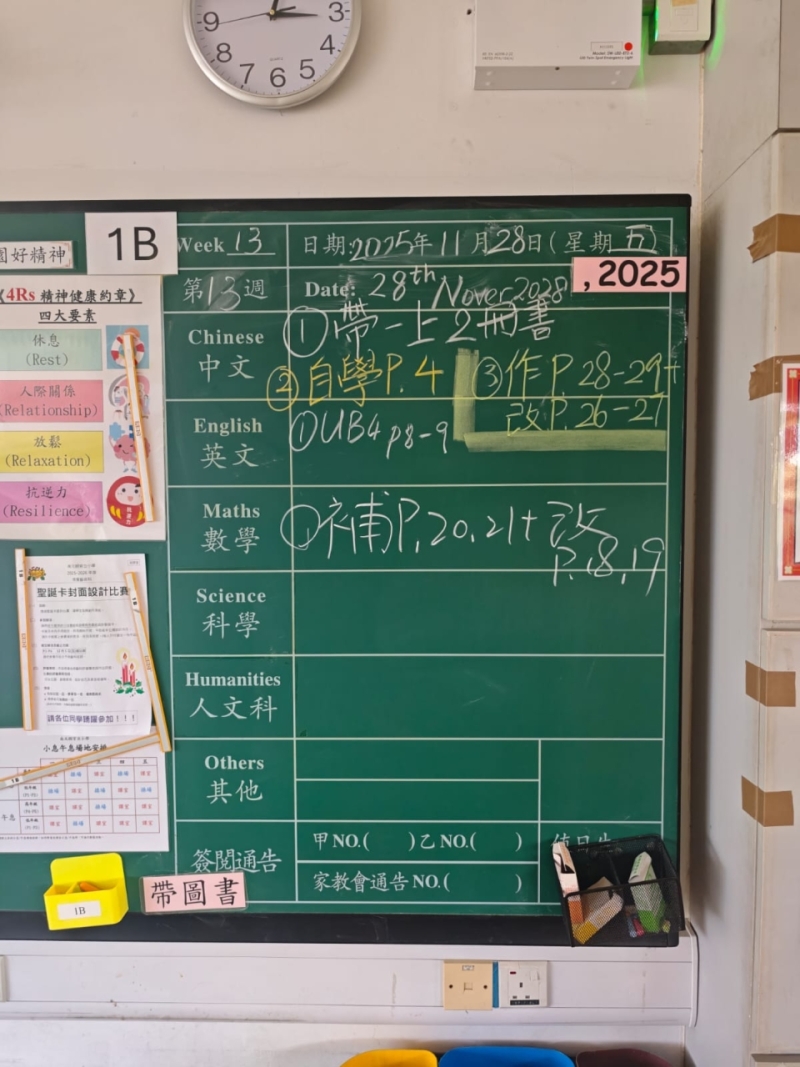 9
3
8
4
7
6
5
園好精神
1B
Week 13
日期:2025年11月28日(星期五)
第13週
Date: 28th Nover 2028
, 2025
《4Rs 精神健康約章》
四大要素
休息
(Rest)
人際關係
(Relationship)
放鬆
(Relaxation)
抗逆力
(Resilience)
Chinese
中文
①帶一上2冊書
②自學P.4
③作P.28-29+
改P.26-27
English
英文
①UB4 p8-9
Maths
數學
①補P.20.21+改
P.18,19
Science
科學
Humanities
人文科
Others
其他
簽閱通告
甲NO.( )乙NO.( )
家教會通告NO.( )
聖誕卡封面設計比賽
請各位同學踴躍參加!!!
小息午息場地安排
1B
帶圖書